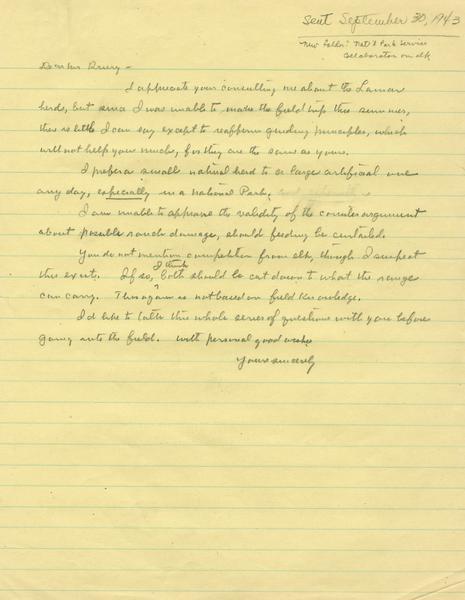 Sent September 30, 1943
"New Folder: Nat'l Park Service
Collaboration on elk
Dear Mr Drury -
I appreciate your consulting me about the Lamar
herds, but since I was unable to make the field trip this summer,
there is little I can say except to reaffirm guiding principles, which
will not help you much, for they are the same as yours.
I prefer a small natural herd to a large artificial one
any day, especially in a National Park,
I am unable to appraise the validity of the counter argument
about possible ranch damage, should feeding be curtailed.
You do not mention competition from elk, though I suspect
I think
this exists. If so, both should be cut down to what the range
can carry. This again is not based on field knowledge.
I'd like to talk this whole series of questions with you before
going into the field. With personal good wishes
Yours sincerely